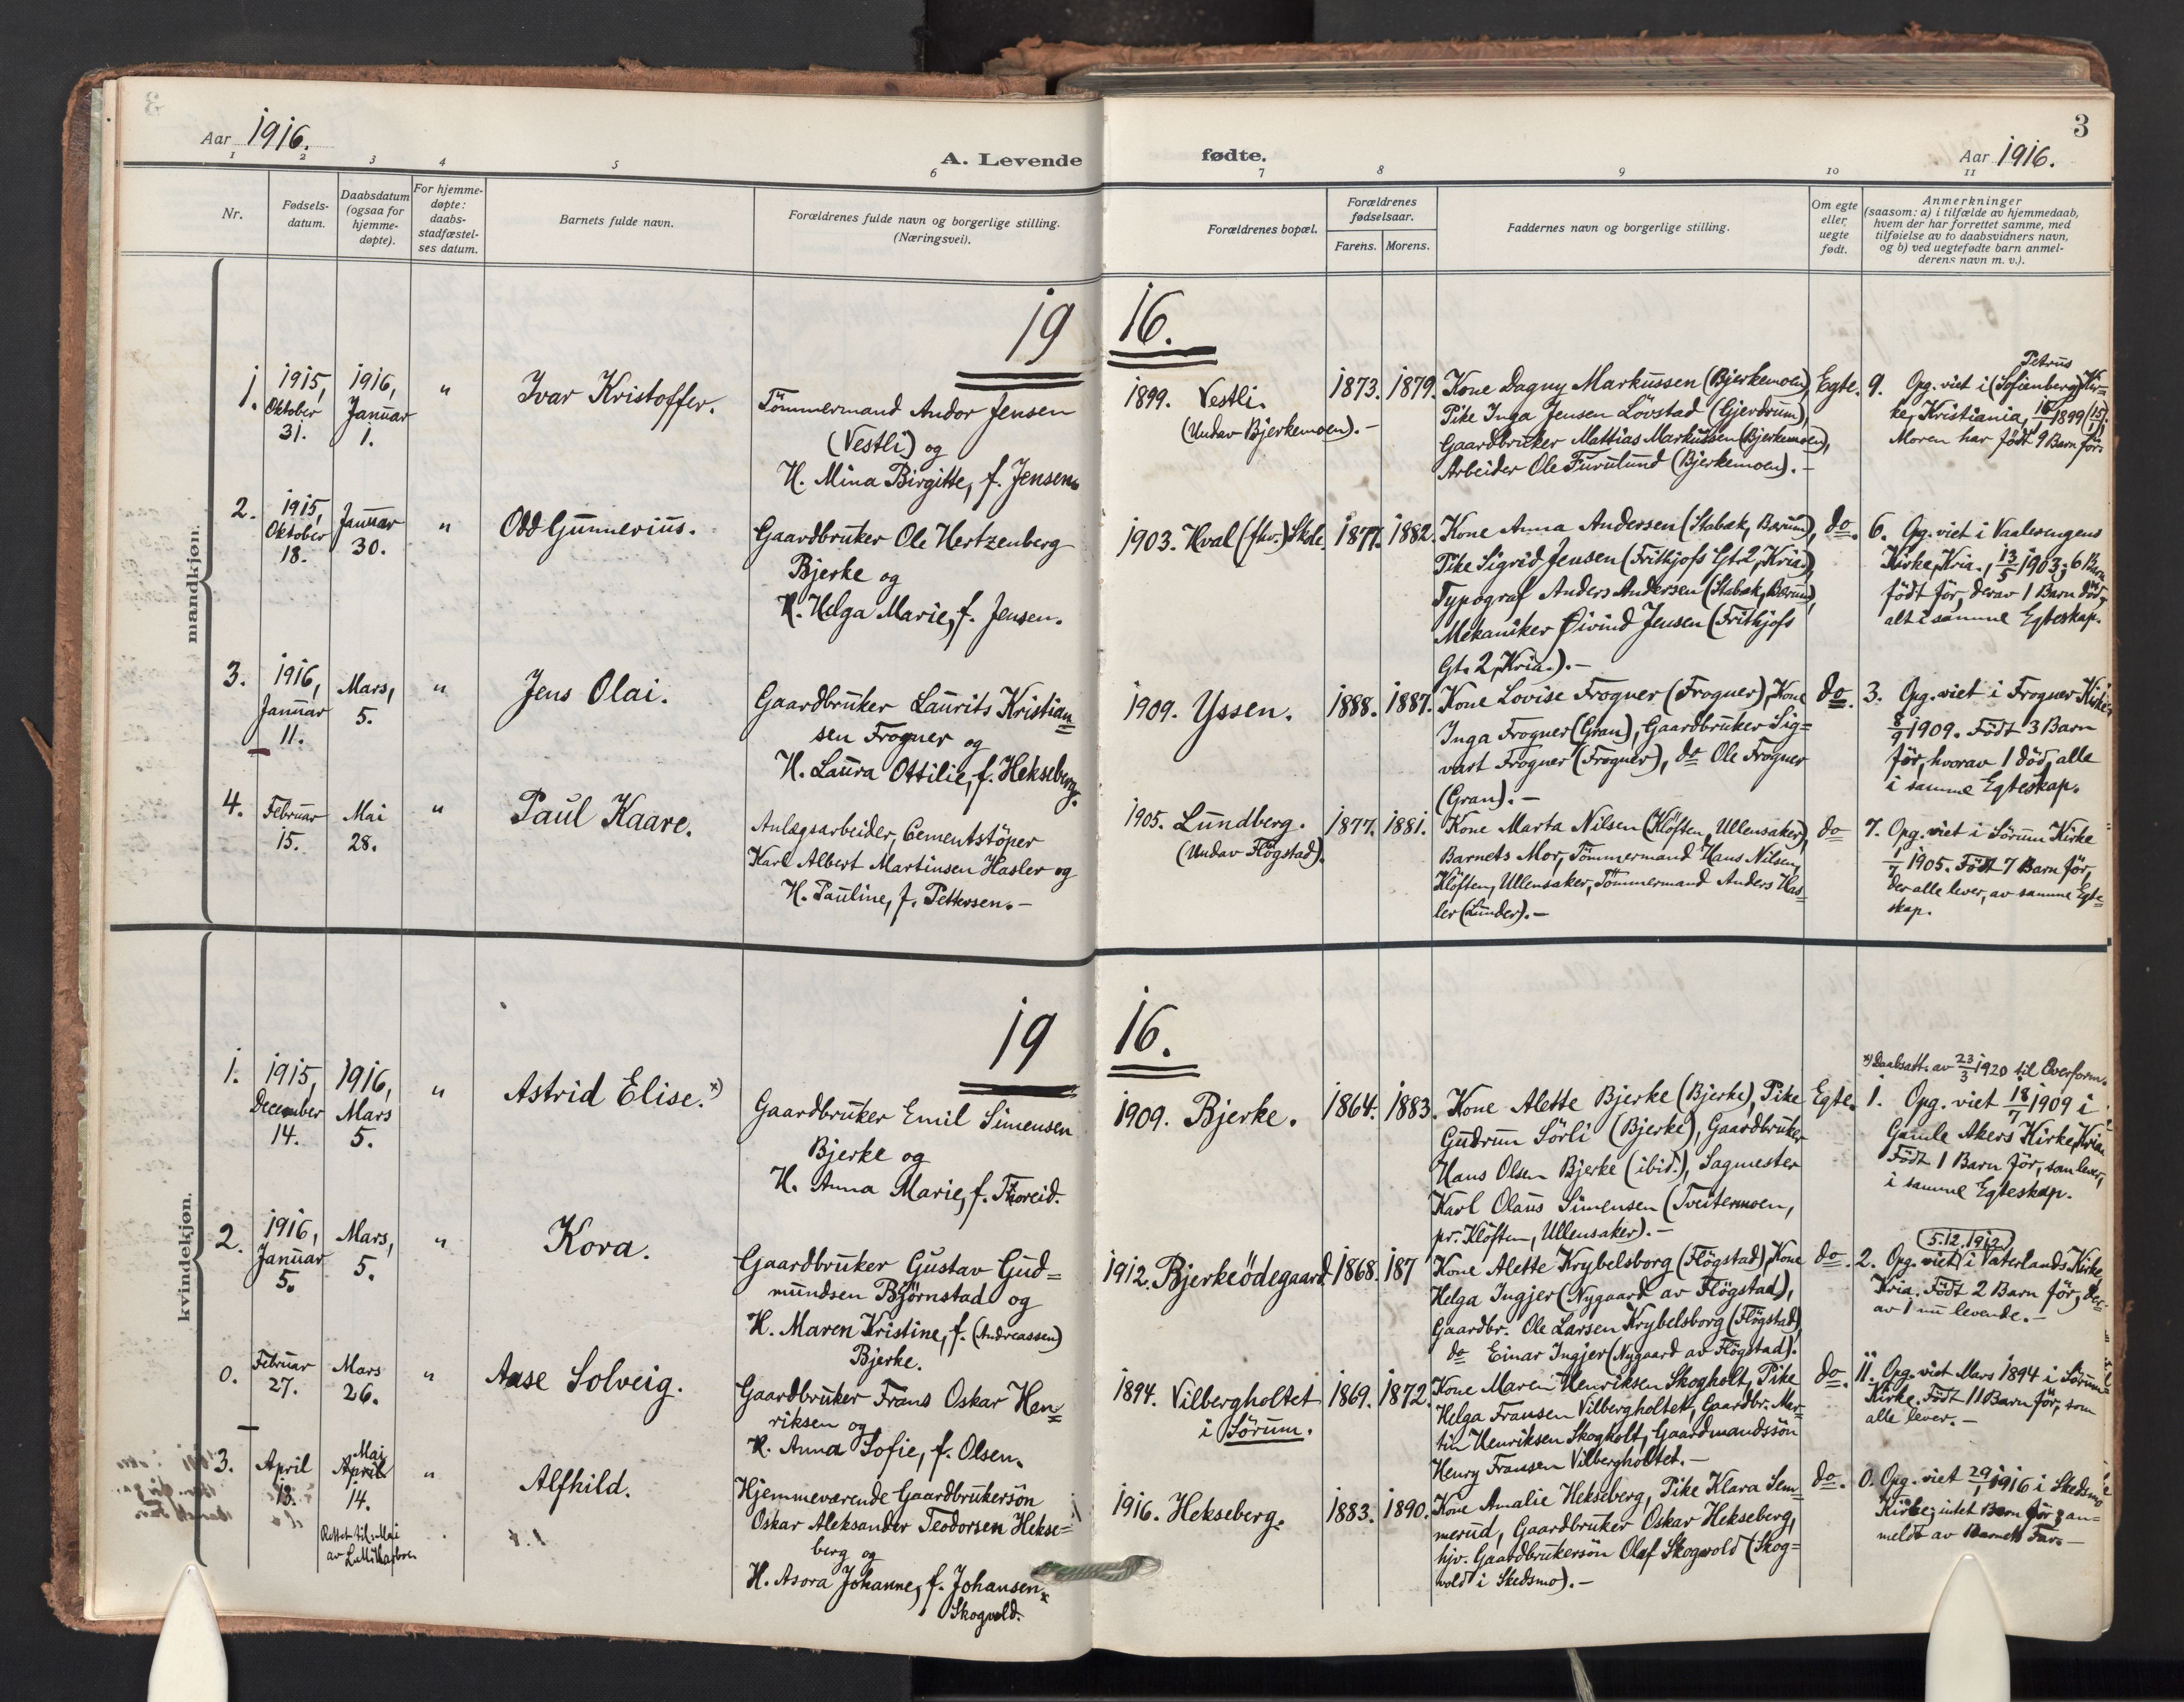 3
Aar 1916.
A. Levende fødte.
Aar 1916.
1 2 3 4 5 6 7 8 9 10 11
Nr.
Fødsels-
datum.
Daabsdatum
(ogsaa for
hjemme-
døpte).
For hjemme-
døpte:
daabs-
stadfæstel-
ses datum.
Barnets fulde navn.
Forældrenes fulde navn og borgerlige stilling.
(Næringsvei).
Forældrenes bopæl.
Forældrenes
fødselsaar.
Farens. Morens.
Faddernes navn og borgerlige stilling.
Om egte
eller
uegte
født.
Anmerkninger
(saasom: a) i tilfælde av hjemmedaab,
hvem der har forrettet samme, med
tilføielse av to daabsvidners navn,
og b) ved uegtefødte barn anmel-
derens navn m. v.).
mandkjøn.
19 16.
1.
1915,
Oktober
31.
1916,
Januar
1.
"
Ivar Kristoffer.
Tömmermand Andor Jensen
(Vestli) og
H. Mina Birgitte, f. Jensen.
1899. Vestli.
(Undav Bjerkemoen). -
1873. 1879.
Kone Dagny Markussen (Bjerkemoen),
Pike Inga Jensen Lövstad (Gjerdrum),
Gaardbruker Mattias Markussen (Bjerkemoen),
Arbeider Ole Furulund (Bjerkemoen). -
Egte.
9. Opg. viet i (Sofienberg) Kir=
Petrus
ke, Kristiania, 1899
Moren har født 9 Barn för.
2.
1915,
Oktober
18.
Januar
30.
"
Odd Gunnerius.
Gaardbruker Ole Hertzenberg
Bjerke og
H. Helga Marie, f. Jensen.
1903. Kval (fhv.) Skole.
1877. 1882.
Kone Anna Andersen (Stabæk, Bærum),
Pike Sigrid Jensen (Frithjofs Gt. 2, Kria.),
Typograf Anders Andersen (Stabæk, Bærum),
Mekaniker Øivind Jensen (Frithjofs
Gt. 2, Kria.). -
do.
6. Opg. viet i Vaalerengens
Kirke, Kria., 13/5 1903; 6 Barn
födt för, derav 1 Barn död,
alt i samme Egteskap.
3.
1916,
Januar
11.
Mars,
5.
"
Jens Olai.
Gaardbruker Laurits Kristian=
sen Frogner og
H. Laura Ottilie, f. Hekseberg.
1909. Yssen.
1888. 1887.
Kone Lovise Frogner (Frogner), Kone
Inga Frogner (Gran), Gaardbruker Sig=
vart Frogner (Frogner), do Ole Frogner
(Gran). -
do.
3. Opg. viet i Frogner Kirke
8/9 1909. Födt 3 Barn
för, hvorav 1 död, alle
i samme Egteskap.
4.
Februar
15.
Mai
28.
"
Paul Kaare.
Anlægsarbeider, Cementstöper
Karl Albert Martinsen Hasler og
H. Pauline, f. Pettersen. -
1905. Lundberg.
(Undav Flögstad).
1877. 1881.
Kone Marta Nilsen (Klöften, Ullensaker),
Barnets Mor, Tömmermand Hans Nilsen,
Klöften, Ullensaker, Tömmermand Anders Has=
ler (Lunder). -
do
7. Opg. viet i Sörum Kirke
1/7 1905. Födt 7 Barn för,
der alle lever, av samme Egte=
skap.
kvindekjøn.
19 16.
1.
1915,
December
14.
1916,
Mars
5.
"
Astrid Elise. x)
Gaardbruker Emil Simensen
Bjerke og
H. Anna Marie, f. Thoreid.
1909. Bjerke.
1864. 1883.
Kone Alette Bjerke (Bjerke), Pike
Gudrun Sörli (Bjerke), Gaardbruker
Hans Olsen Bjerke (ibid.), Sagmester
Karl Olaus Simensen (Tveitermoen,
pr. Klöften, Ullensaker). -
Egte.
x) Daabsatt. av 23/3 1920 til Overform.
1. Opg. viet 18/7 1909 i
Gamle Akers Kirke, Kria
Födt 1 Barn för, som lever,
i samme Egteskap.
2.
1916,
Januar
5.
Mars,
5.
"
Kora.
Gaardbruker Gustav Gud=
mundsen Björnstad og
H. Maren Kristine, f. (Andreassen)
Bjerke.
1912. Bjerkeödegaard.
1868. 187
Kone Alette Krybelsborg (Flögstad), Kone
Helga Ingjer (Nygaard av Flögstad),
Gaardbr. Ole Larsen Krybelsborg (Flögstad),
do Einar Ingjer (Nygaard av Flögstad).
do.
5.12.1912
2. Opg. viet i Vaterlands Kirke
Kria. Födt 2 Barn för, der=
av 1 nu levende. -
0.
Februar
27.
Mars
26.
"
Aase Solveig.
Gaardbruker Frans Oskar Hen=
riksen og
H. Anna Sofie, f. Olsen.
1894. Vilbergholtet
i Sörum.
1869. 1872.
Kone Maren Henriksen Skogholt, Pike
Helga Fransen Vilbergholtet, Gaardbr. Mar=
tin Henriksen Skogholt, Gaardmandssön
Henry Fransen Vilbergholtet. -
do.
11. Opg. viet Mars 1894 i Sörum
Kirke. Födt 11 Barn för, som
alle lever. -
3.
April
13.
Mai
April
14.
Rettet til: Mai
"
Alfhild.
Hjemmeværende Gaardbrukersön
Oskar Aleksander Teodorsen Hekse=
berg og
H. Asora Johanne, f. Johansen
Skogvold.
1916. Hekseberg.
1883. 1890.
Kone Amalie Hekseberg, Pike Klara Sem=
merud, Gaardbruker Oskar Hekseberg,
hjv. Gaardbrukersön Olaf Skogvold (Skog=
vold i Skedsmo). -
do.
0. Opg. viet 29/1 1916 i Skedsmo
Kirke; intet Barn för; an=
meldt av Barnets Far. -